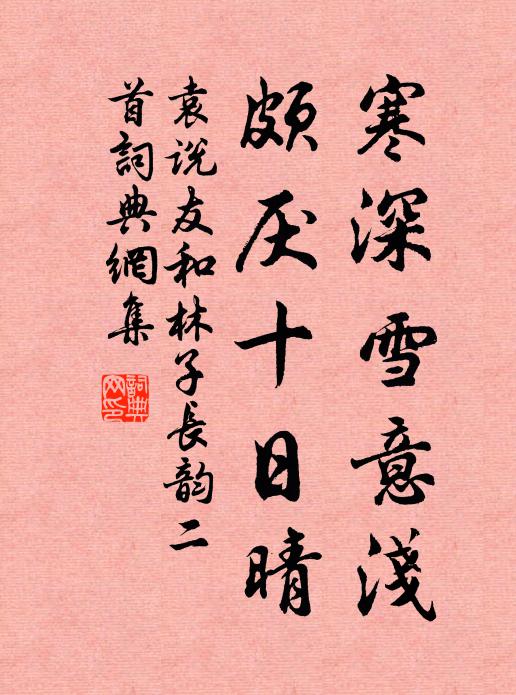 寒深雪意淺
頗厌十日晴
袁说友和林子長韵二
首詞典網集
詞典
网印